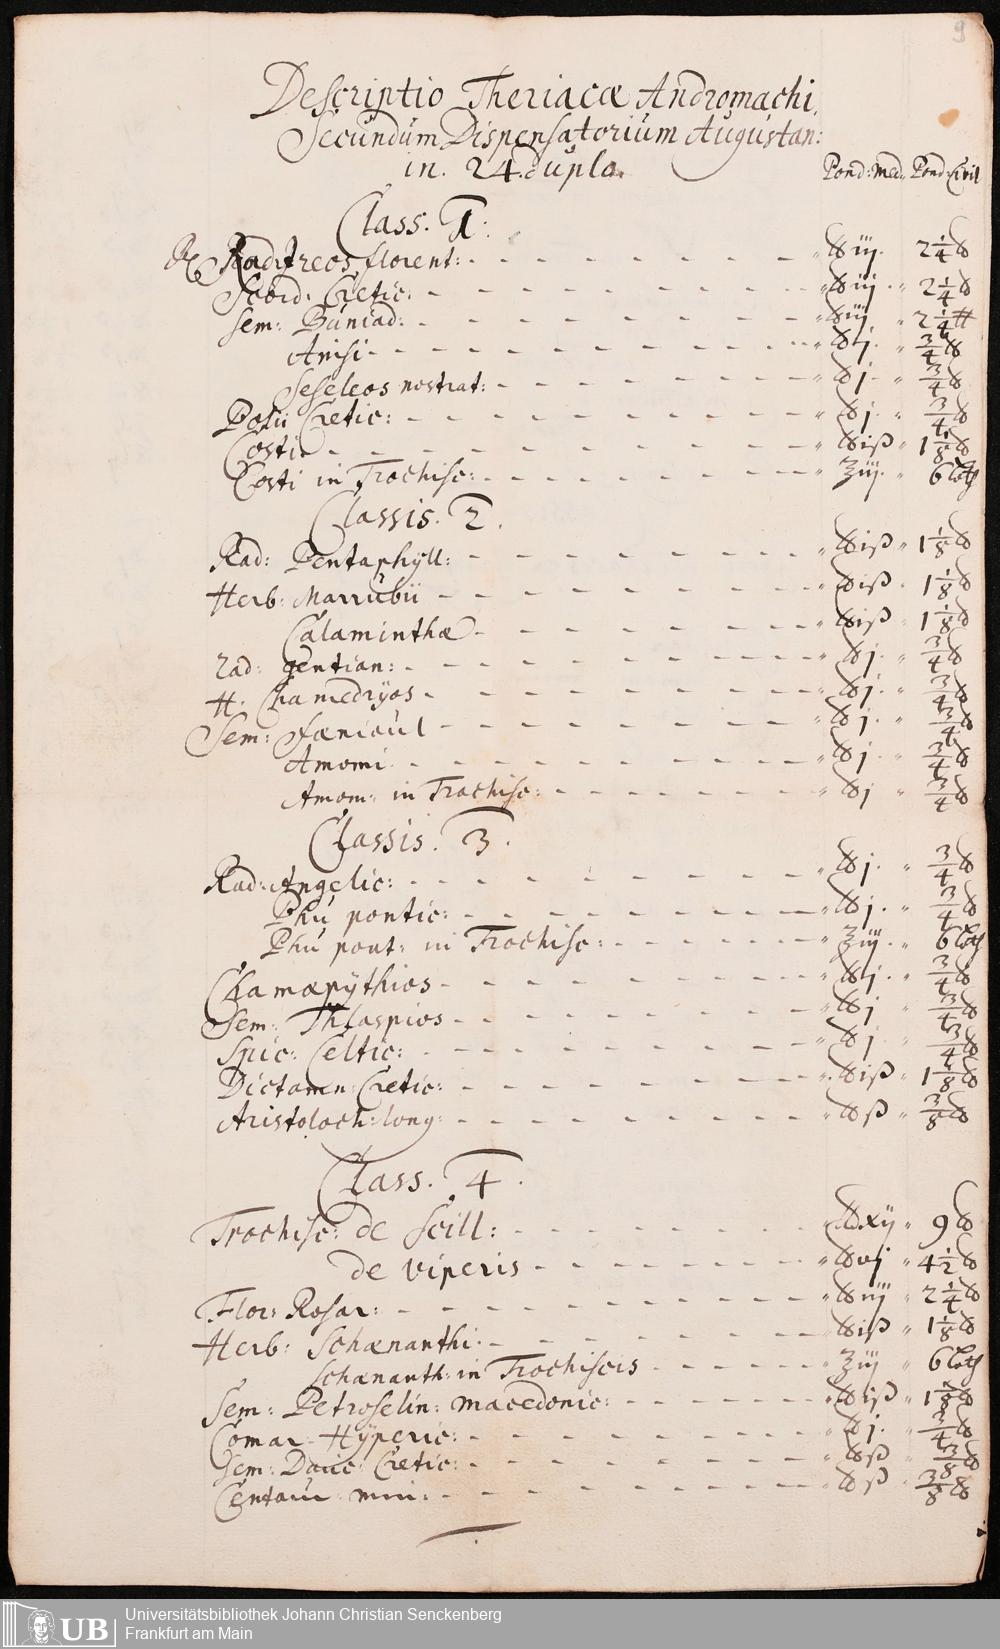 9
Descriptio Theriacæ Andromachi
Secundùm Dispensatoriùm Aùgùstan:
in. 24. dupla.
Pond: med: Pond: Civil
Class. 1.
℞ Rad: Ireos florent: - - - ℔iij. 2 1/4 ℔
Scord: Cretic: - - - ℔iij. 2 1/4 ℔
Sem: Bùniad: - - - ℔iij 2 1/4 ℔
Anisi - - - ℔j. 3/4 ℔
Seseleos nostrat: - - - ℔j. 3/4 ℔
Polii Cretic: - - - ℔j. 3/4 ℔
Costi - - - ℔iß 1 1/8 ℔
Costi in Trochisc: - - - ℥iij. 6 Loth
Classis. 2.
Rad: Pentaphÿll: - - - ℔iß 1 1/8 ℔
Herb: Marrùbii - - - ℔iß. 1 1/8 ℔
Calaminthæ - - - ℔iß 1 1/8 ℔
Rad: gentian: - - - ℔j. 3/4 ℔
H. Chamedrÿos - - - ℔j. 3/4 ℔
Sem: fænicùl - - - ℔j. 3/4 ℔
Amomi - - - ℔j 3/4 ℔
Amom: in Trochisc: - - - ℔j 3/4 ℔
Classis. 3.
Rad: Angelic: - - - ℔j. 3/4 ℔
Phù pontic: - - - ℔j. 3/4 ℔
Phù pont: in Trochisc: - - - ℥iij. 6 Loth
Chamæpÿthios - - - ℔j. 3/4 ℔
Sem: Thlaspios - - - ℔j 3/4 ℔
Spic: Celtic: - - - ℔j 3/4 ℔
Dictamn: Cretic: - - - ℔iß 1 1/8 ℔
Aristoloch: long: - - - ℔ß 3/8 ℔
Class. 4.
Trochisc: de Scill: - - - ℔xij 9 ℔
de viperis - - - ℔vj 4 1/2 ℔
Flor: Rosar: - - - ℔iij 2 1/4 ℔
Herb: Schænanthi - - - ℔iß 1 1/8 ℔
Schænanth: in Trochiscis - - - ℥iij 6 Loth
Sem: Petroselin: macedonic: - - - ℔iß 1 1/8 ℔
Comar Hÿperic: - - - ℔j. 3/4 ℔
Sem: Dauc: Cretic: - - - ℔ß 3/8 ℔
Centaur: min: - - - ℔ß 3/8 ℔
UB
Universitätsbibliothek Johann Christian Senckenberg
Frankfurt am Main